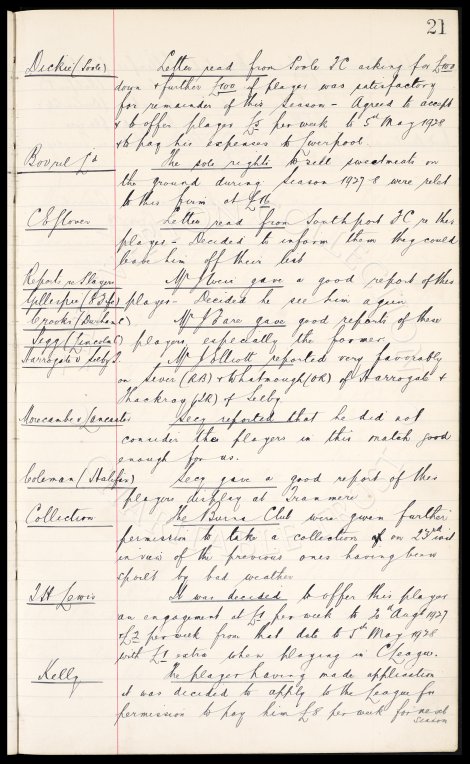 21
Dickie (Poole) Letter read from Poole FC asking for £100
down & further £100 if player was satisfactory
for remainder of this season - Agreed to accept
& to offer player £5 per week to 5th May 1928
& to pay his expenses to Liverpool.
Bovril Ld The sole rights to sell sweetmeats on
the ground during season 1927-8 were relet
to this firm at £16
C E Glover Letter read from Southport FC re this
player - Decided to inform them they could
leave him off their list
Reports re Players Mr gave a good report of this
Gillespie (E. Fife) player - Decided he see him again
Crooks (Durham C) Mr gave good reports of these
Legg (Lincoln C) players, especially the former
Harrogate v Selby T. Mr reported very favorably
on (RB) & Whatmough (OR) of Harrogate &
Thackray (IR) of Selby
Morecambe v Lancaster Secy reported that he did not
consider the players in this match good
enough for us.
Coleman (Halifax) Secy gave a good report of this
players display at Tranmere
Collection The Burns Club were given further
permission to take a collection on 23rd inst
in view of the previous ones having been
spoilt by bad weather
T H Lewis It was decided to offer this player
an engagement at £1 per week to 20th Augt 1927
& £2 per week from that date to 5th May 1928
with £1 extra when playing in C League.
Kelly The player having made application
it was decided to apply to the League for
permission to pay him £8 per week for next
season